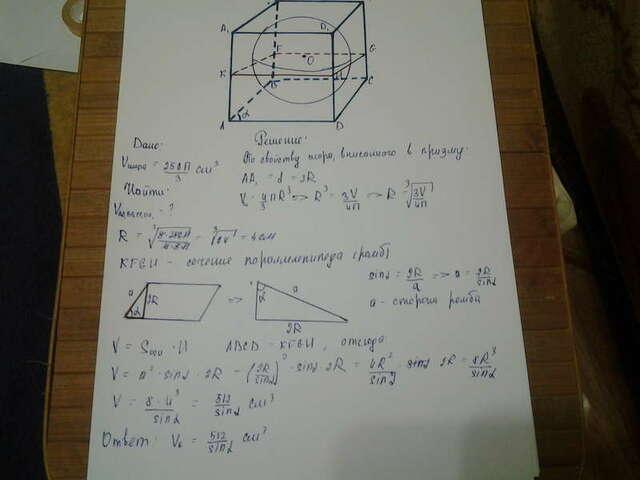 A₁ D₁
F O G
K H
B C
A α D
Дано: Решение:
Vшара = 256π/3 см³ По свойству шара, вписанного в призму:
AA₁ = d = 2R
Найти:
V = 4/3 πR³ => R³ = 3V/4π => R = ∛(3V/4π)
= ?
R = = ∛64 = 4 см
KFGH - сечение параллелепипеда (ромб)
sinα = 2R/a => a = 2R/sinα
a - сторона ромба
a 2R α => α a 2R
V = Sосн · H ABCD = KFGH, отсюда
V = a² · sinα · 2R = (2R/sinα)² · sinα · 2R = 4R²/sin²α · sinα · 2R = 8R³/sinα
V = 8·4³/sinα = 512/sinα см³
Ответ: V = 512/sinα см³